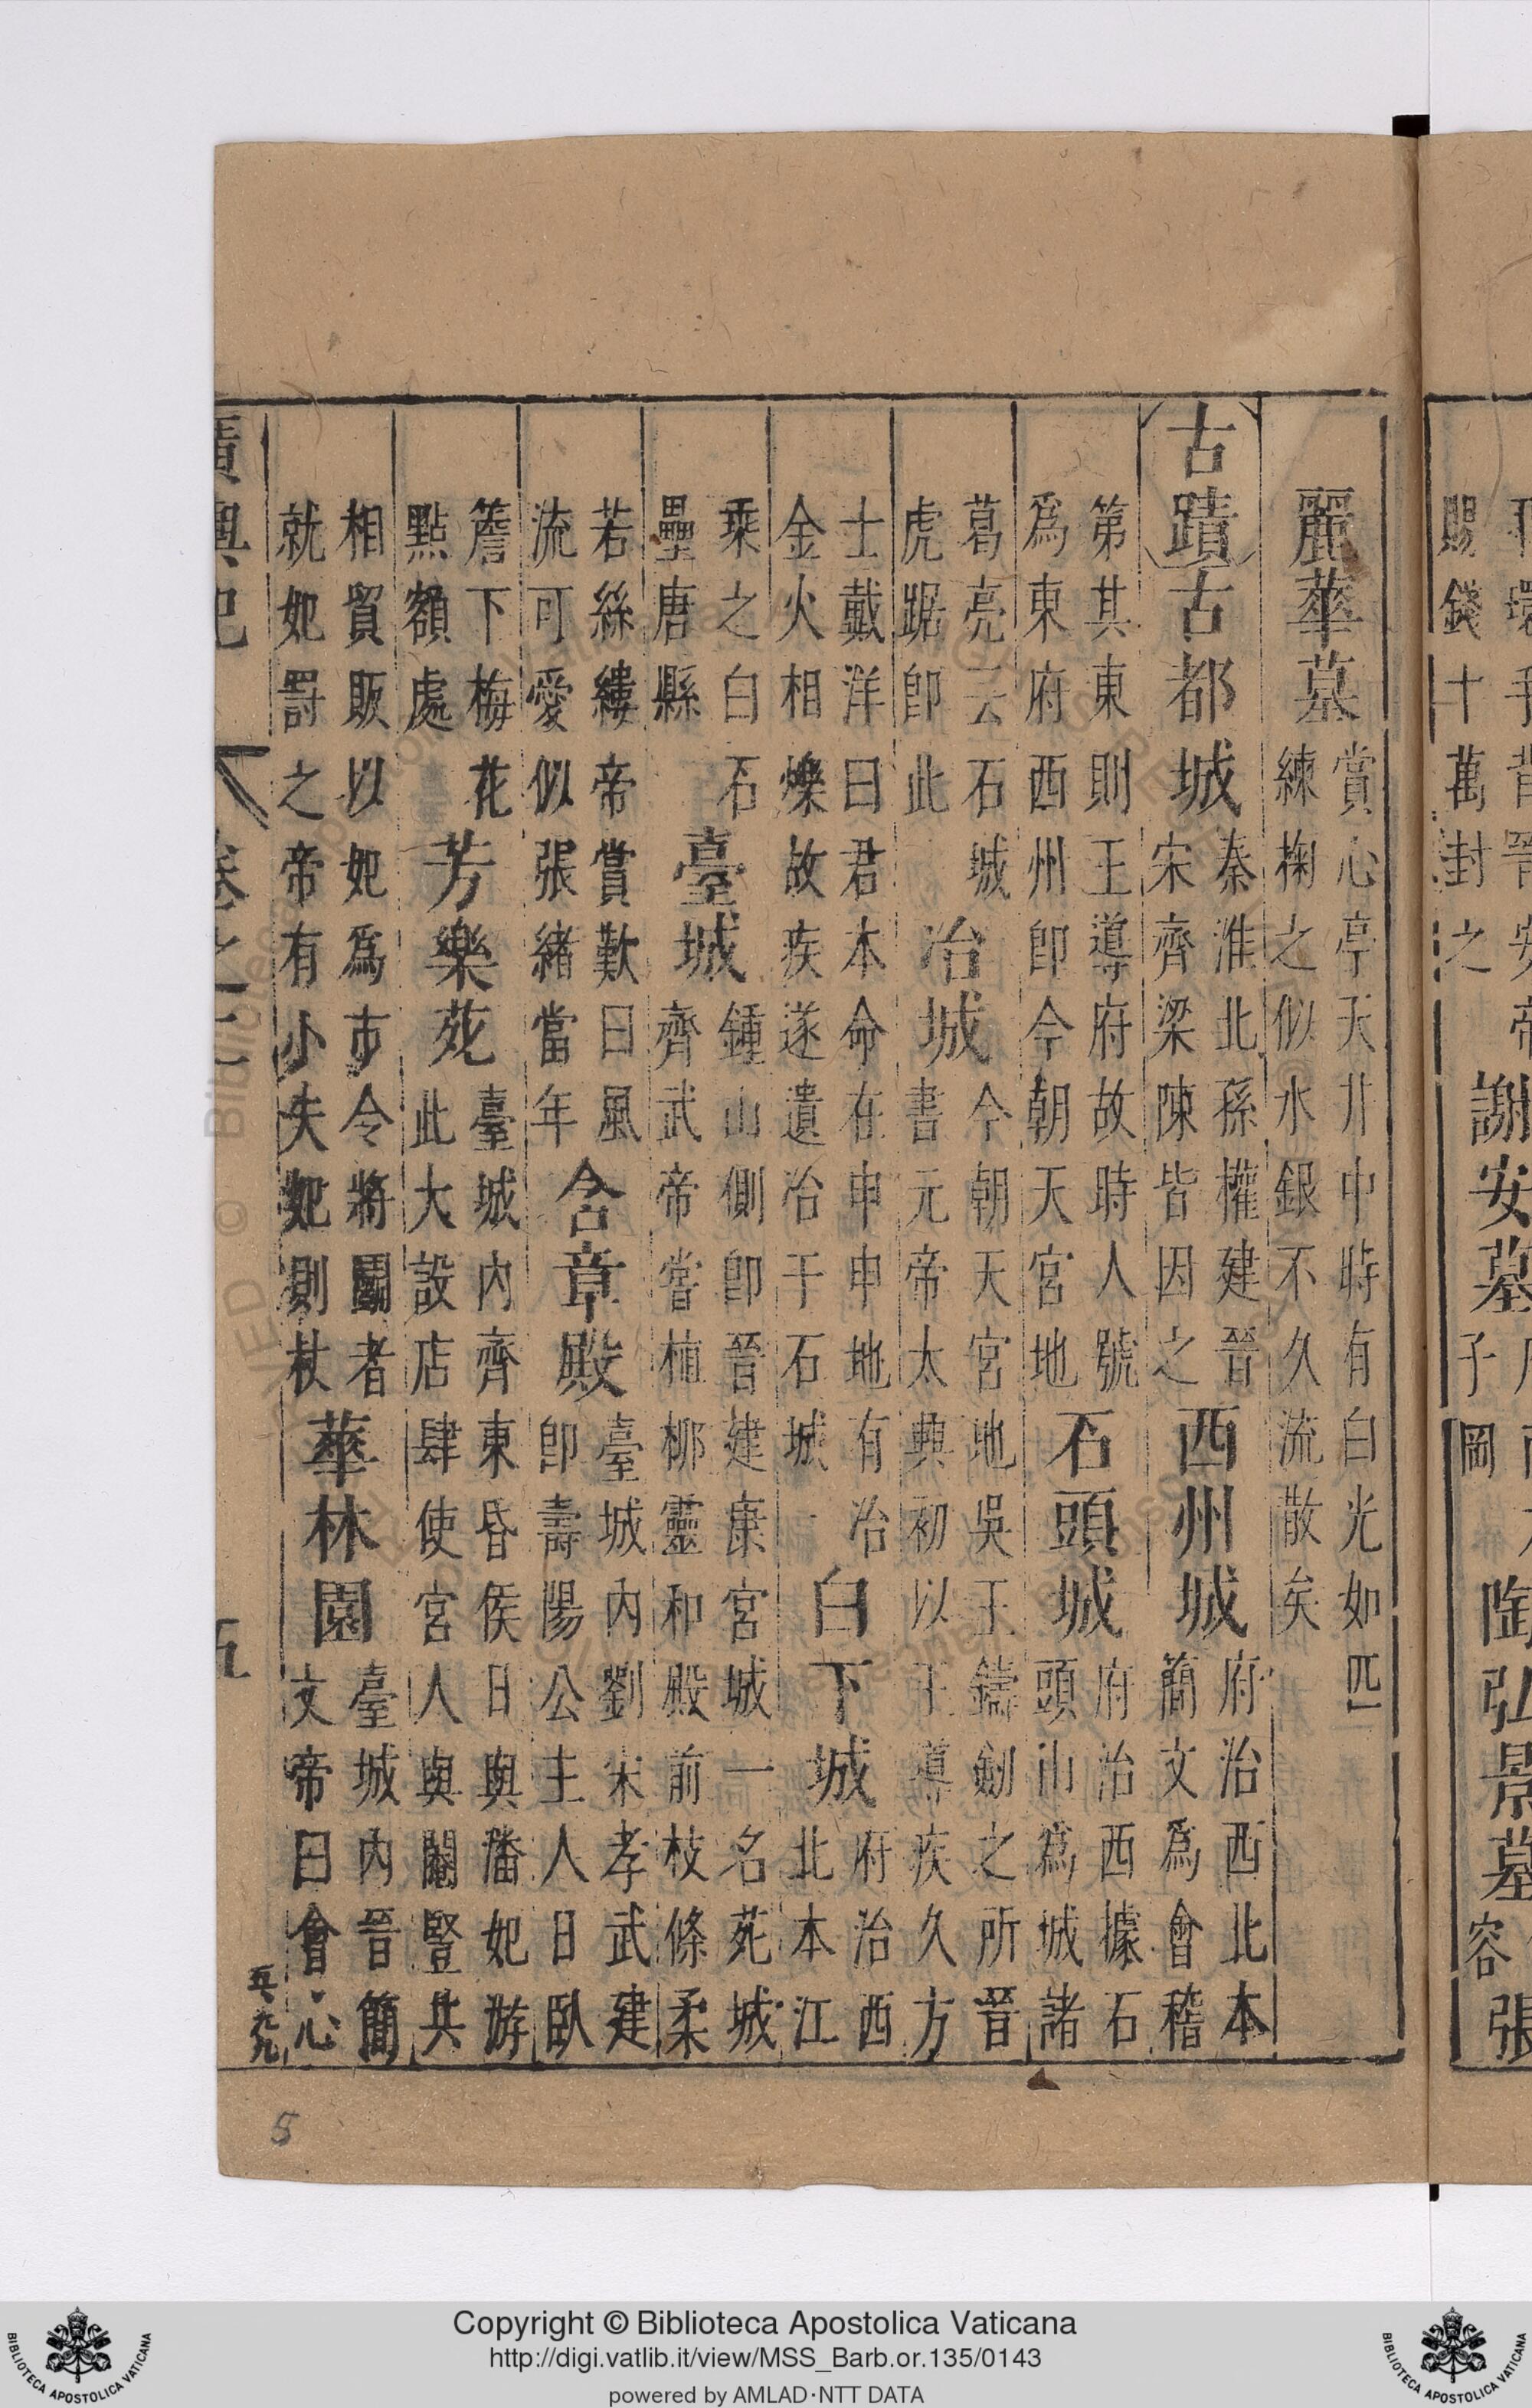 賜錢十萬封之
謝安墓
子岡
陶弘景墓
容
張
麗華墓
賞心亭天井中時有白光如匹
練掬之似水銀不久流散矣
古蹟
古都城
秦淮北孫權建晉
宋齊梁陳皆因之
西州城
府治西北本
簡文爲會稽
第其東則王導府故時人號
爲東府西州即今朝天宮地
石頭城
府治西據石
頭山爲城諸
葛亮云石城
虎踞即此
冶城
今朝天宮地吳王鑄劒之所晉
書元帝太興初以王導疾久方
士戴洋曰君本命在申申地有冶
金火相爍故疾遂遣冶于石城
白下城
府治西
北本江
乘之白石
壘唐縣
臺城
鍾山側即晉建康宮城一名苑城
齊武帝嘗植柳靈和殿前枝條柔
若絲縷帝賞歎曰風
流可愛似張緒當年
含章殿
臺城內劉宋孝武建
即壽陽公主人日臥
簷下梅花
點額處
芳樂苑
臺城內齊東昏侯日與潘妃游
此大設店肆使宮人與閹豎共
相貿販以妃爲市令將鬭者
就妃罸之帝有小失妃則杖
華林園
臺城內晉簡
文帝曰會心
廣輿記
卷之二
五
5
Copyright © Biblioteca Apostolica Vaticana
http://digi.vatlib.it/view/MSS_Barb.or.135/0143
powered by AMLAD·NTT DATA